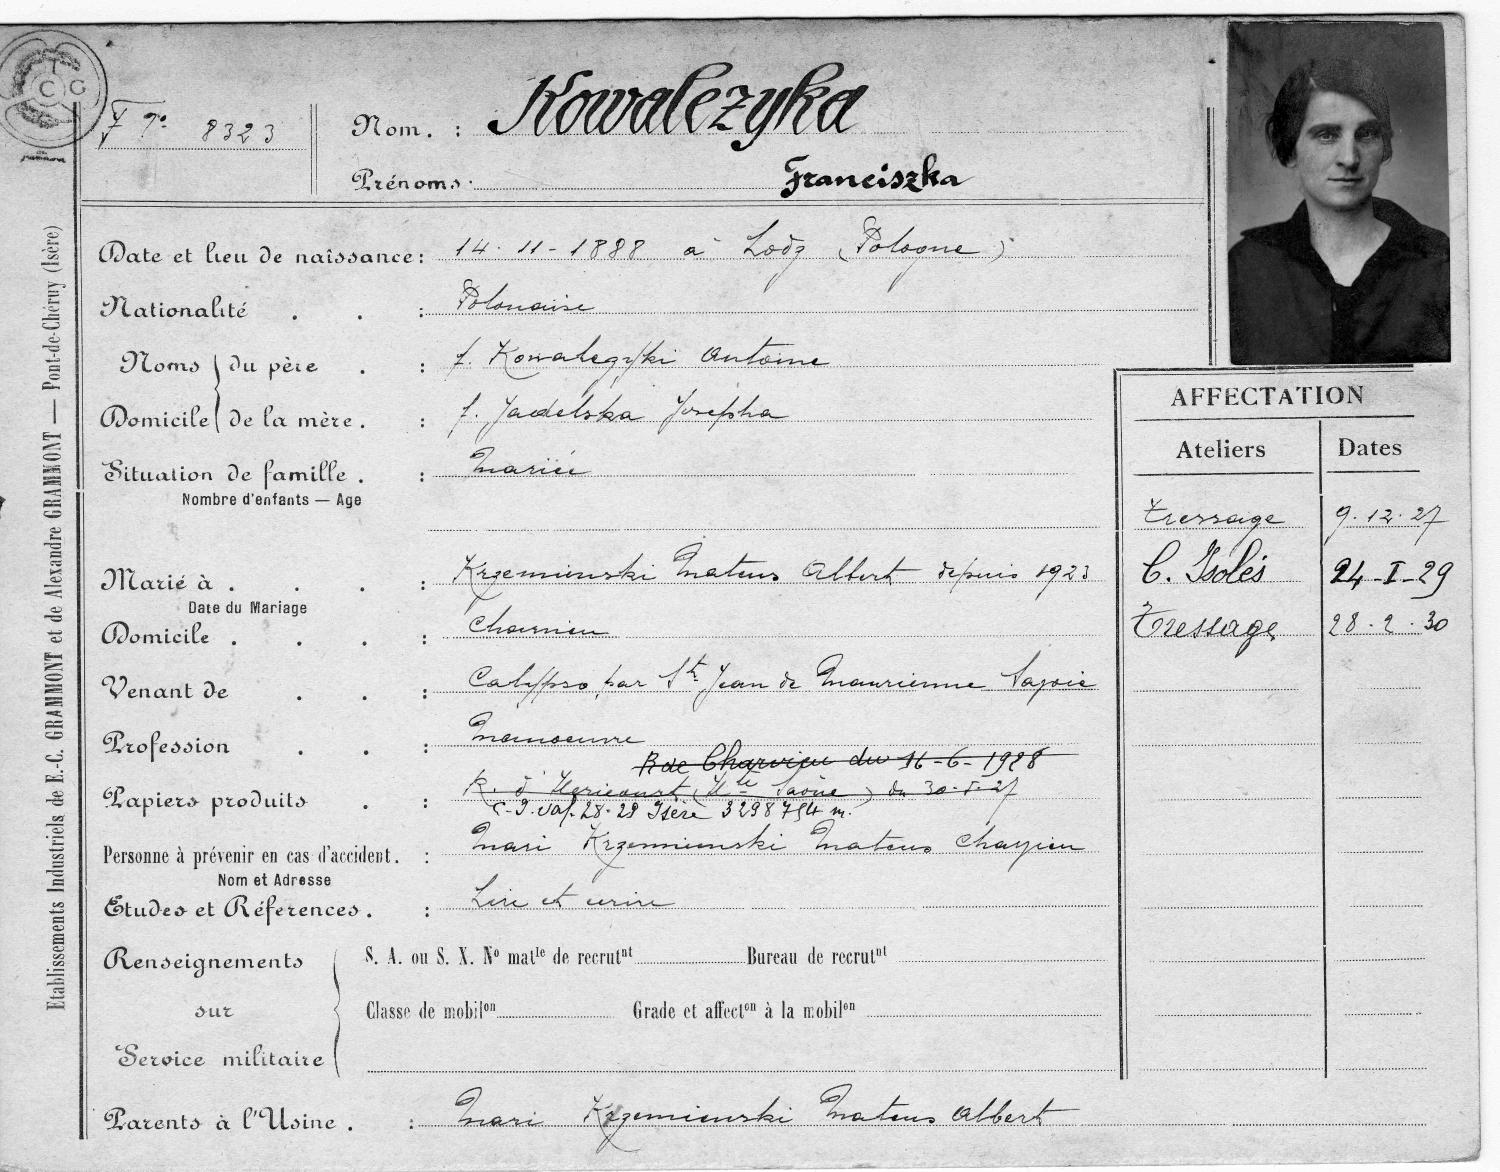 T C G
F 7º 8323
Nom. : Kowalezyka
Prénoms. Franciszka
Date et lieu de naissance : 14-11-1888 à Lodz (Pologne)
Nationalité . . : Polonaise
Noms du père . : f. Kowalezyski Antoine
Domicile de la mère . : f. Jadelska Josepha
Situation de famille . : Mariée
Nombre d'enfants — Age
Marié à . . . : Krzemienski Mateus Albert depuis 1923
Date du Mariage
Domicile . . . : Charvieu
Venant de . . : Calypso par St Jean de Maurienne Savoie
Profession . . : Manoeuvre
Rce Charvieu du 16-6-1928
Papiers produits . : R. d'Hericourt (Hte Saône) du 30-5-27
C.I. val. 28-29 Isère 3298754 m.
Personne à prévenir en cas d'accident. : Mari Krzemienski Mateus Charvieu
Nom et Adresse
Etudes et Références . : Lire et écrire
Renseignements sur Service militaire
S. A. ou S. X. No matle de recrutnt Bureau de recrutnt
Classe de mobilon Grade et affecton à la mobilon
Parents à l'Usine . : Mari Krzemienski Mateus Albert
AFFECTATION
Ateliers Dates
Tressage 9.12.27
C. Isolés 24-I-29
Tressage 28.2.30
Etablissements Industriels de E.-C. GRAMMONT et de Alexandre GRAMMONT — Pont-de-Chéruy (Isère)